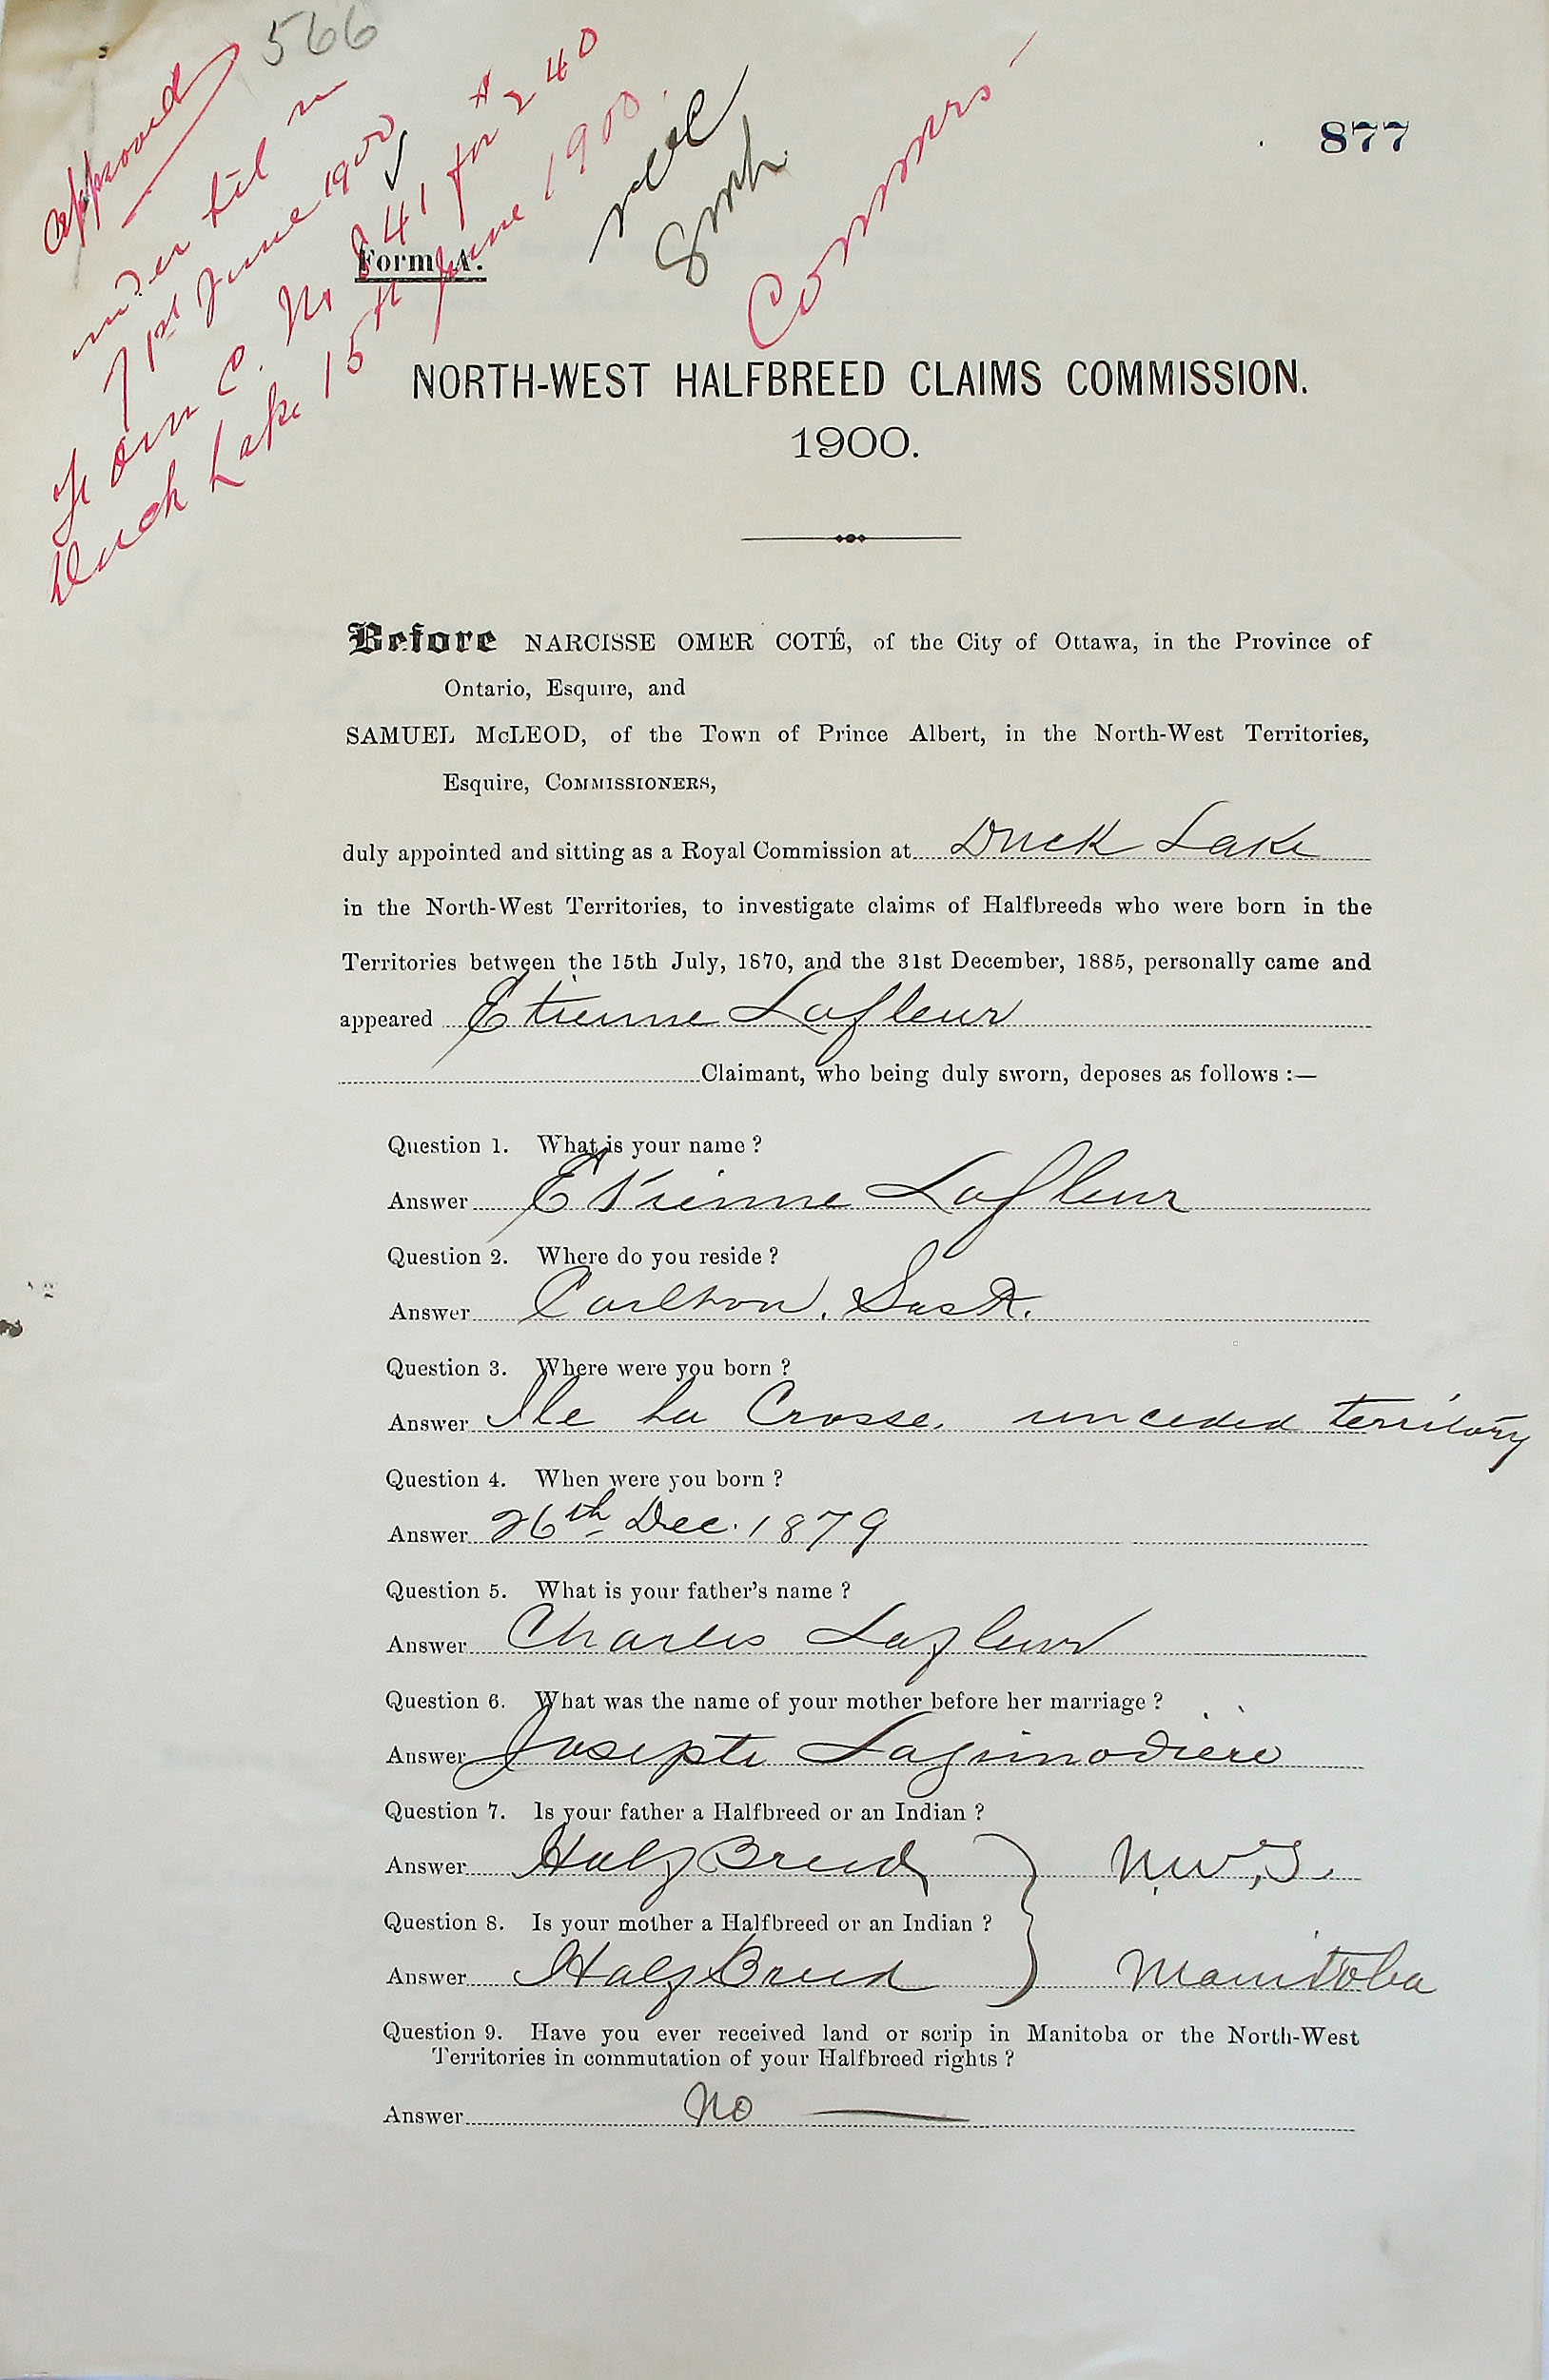 566
Approved
under tel m
7 1st June 1900
Form C. No 841 for $240
Duck Lake 15th June 1900.
Commrs
877
Form A.
NORTH-WEST HALFBREED CLAIMS COMMISSION.
1900.
Before NARCISSE OMER COTÉ, of the City of Ottawa, in the Province of
Ontario, Esquire, and
SAMUEL McLEOD, of the Town of Prince Albert, in the North-West Territories,
Esquire, COMMISSIONERS,
duly appointed and sitting as a Royal Commission at Duck Lake
in the North-West Territories, to investigate claims of Halfbreeds who were born in the
Territories between the 15th July, 1870, and the 31st December, 1885, personally came and
appeared Etienne Lafleur
Claimant, who being duly sworn, deposes as follows :—
Question 1. What is your name ?
Answer Etienne Lafleur
Question 2. Where do you reside ?
Answer Carlton, Sask.
Question 3. Where were you born ?
Answer Ile La Crosse, unceded territory
Question 4. When were you born ?
Answer 26th Dec. 1879
Question 5. What is your father's name ?
Answer Charles Lafleur
Question 6. What was the name of your mother before her marriage ?
Answer Josepte Lagimodiere
Question 7. Is your father a Halfbreed or an Indian ?
Answer Half Breed } N.W.T.
Question 8. Is your mother a Halfbreed or an Indian ?
Answer Half Breed } Manitoba
Question 9. Have you ever received land or scrip in Manitoba or the North-West
Territories in commutation of your Halfbreed rights ?
Answer No —